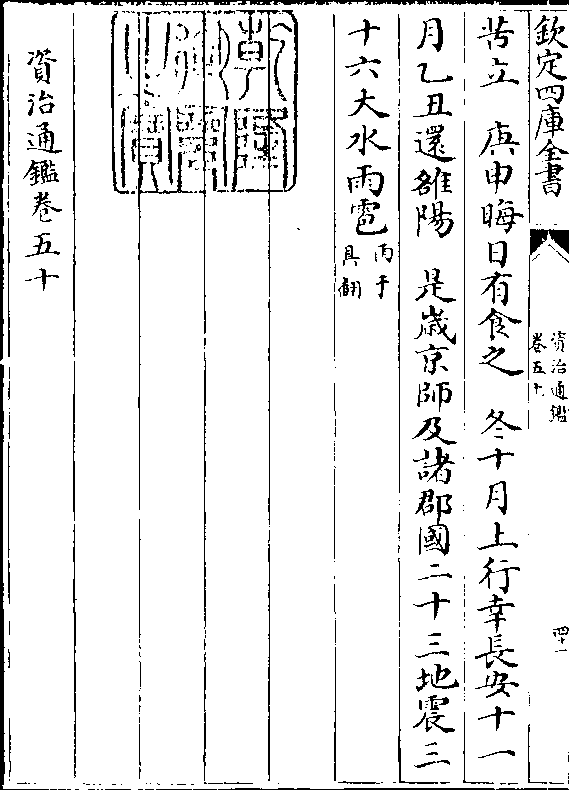 欽定四庫全書
資治通鑑
卷五十
四十一
苦立　庚申晦日有食之　冬十月上行幸長安十一
月乙丑還雒陽　是歲京師及諸郡國二十三地震三
十六大水雨雹
雨于
具翻
乾隆御覽之寶
資治通鑑卷五十